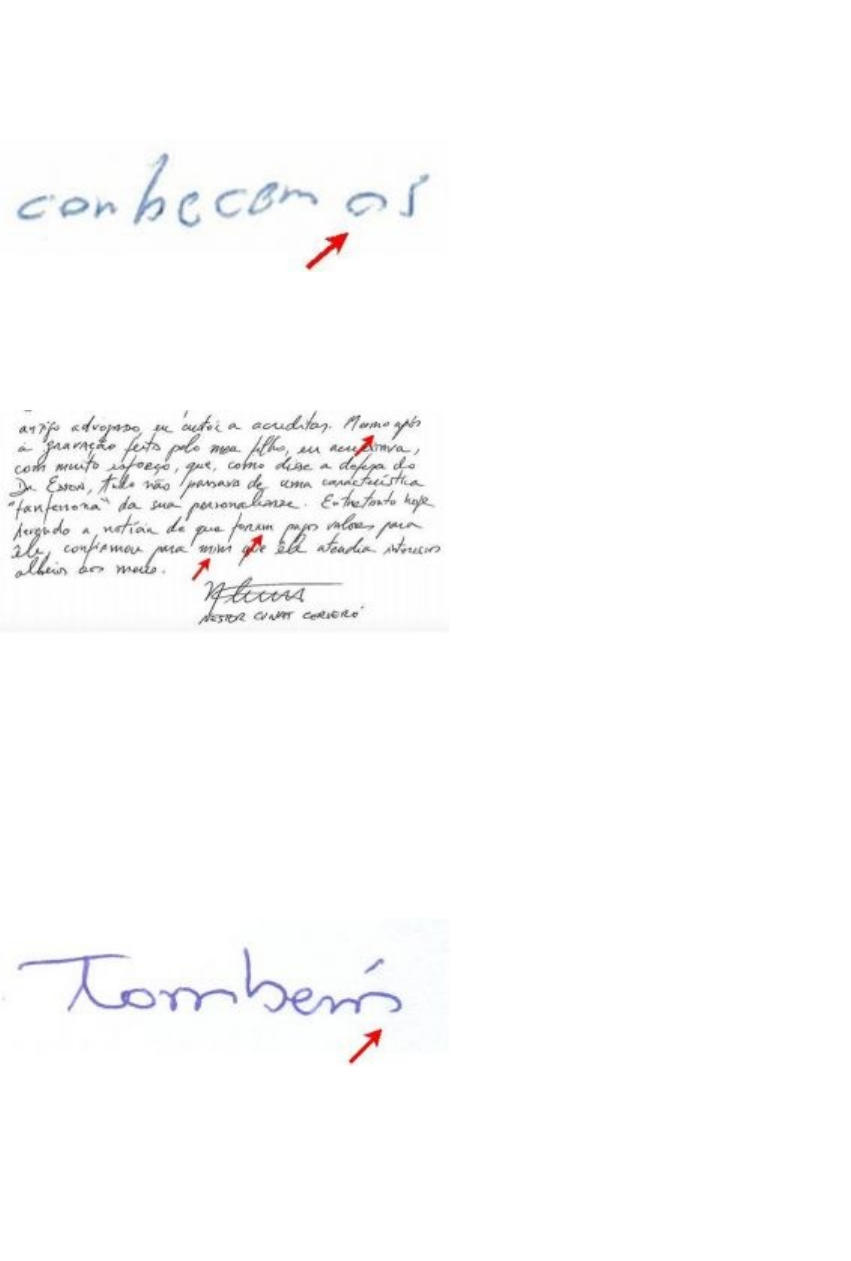 conhecem os
antigo advogado, eu custei a acreditar. Mesmo após
a gravação feita pelo meu filho, eu acreditava,
com muito esforço, que, como disse a defesa do
Dr. Edson, tudo não passava de uma característica
"fanfarrona" da sua personalidade. Entretanto hoje
lendo a notícia de que foram pagos valores para
ele, confirmou para mim que ele atendia interesses
alheios aos meus.
NESTOR CUÑAT CERVERÓ
Também